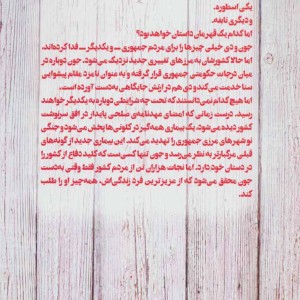 یکی اسطوره.
و دیگری نابغه.
اما کدام یک قهرمان داستان خواهد بود؟
جون و دی خیلی چیزها را برای مردم جمهوری ــ و یکدیگر ــ فدا کرده‌اند.
اما حالا کشورشان به مرزهای تغییری جدید نزدیک می‌شود. جون دوباره در
میان درجات حکومتی جمهوری قرار گرفته و به عنوان نامزد مقام پیشوایی
سنا خدمت می‌کند و دی هم در ارتش جایگاهی به‌دست آورده است.
اما هیچ کدام نمی‌دانستند که تحت چه شرایطی دوباره به یکدیگر خواهند
رسید. درست زمانی که امضای عهدنامه‌ی صلحی پایدار در افق سرنوشت
کشور دیده می‌شود، یک بیماری همه‌گیر در کلونی‌ها پخش می‌شود و جنگی
نو شهرهای مرزی جمهوری را تهدید می‌کند. این بیماری جدید از گونه‌های
قبلی مرگبارتر به نظر می‌رسد و جون تنها کسی‌ست که کلید دفاع از کشور را
در دستان خود دارد. اما نجات هزاران تن از مردم کشور فقط وقتی به‌دست
جون محقق می‌شود که از عزیزترین فرد زندگی‌اش، همه‌چیز او را طلب
کند.